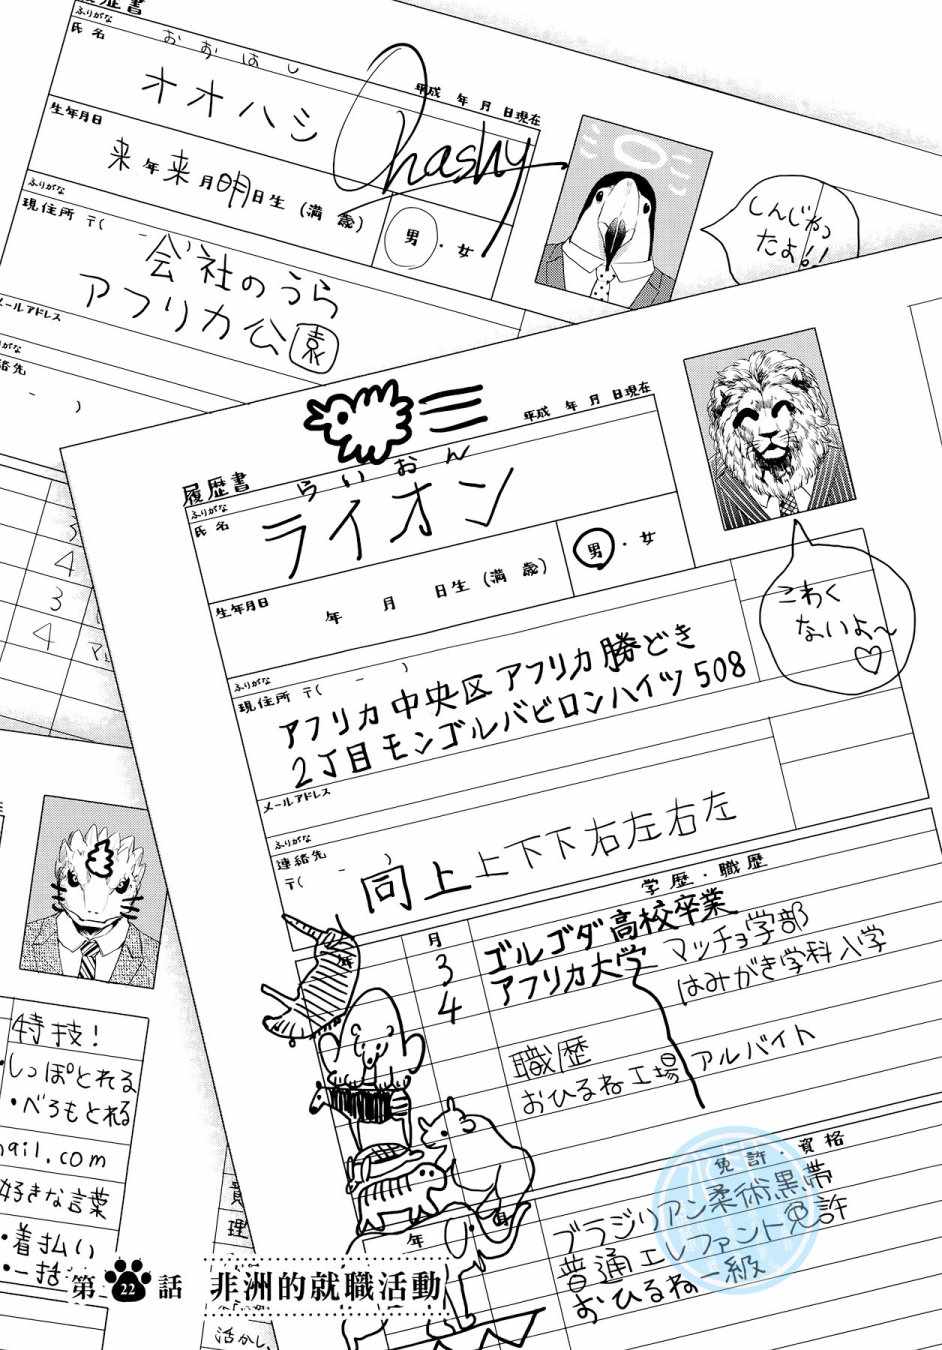 履歴書
ふりがな
おおはし
氏名
オオハシ
Ohashy
平成 年 月 日現在
生年月日
来年 来月 明日生 (満 歳)
男・女
ふりがな
現住所 〒( - )
会社のうら
アフリカ公園
メールアドレス
ふりがな
絡先
- )
しんじゃっ
たよ!!
3
4
3
4
履歴書
平成 年 月 日現在
ふりがな
らいおん
氏名
ライオン
生年月日
年 月 日生 (満 歳)
男・女
こわく
ないよ〜
♡
ふりがな
現住所 〒( - )
アフリカ中央区アフリカ勝どき
2丁目モンゴルバビロンハイツ508
メールアドレス
ふりがな
連絡先
〒( - )
同上上下下右左右左
学歴・職歴
月
3 ゴルゴダ高校卒業
4 アフリカ大学 マッチョ学部
はみがき学科入学
職歴
おひるね工場 アルバイト
年
月
免許・資格
ブラジリアン柔術黒帯
普通エレファント免許
おひるね一級
特技!
・しっぽとれる
・べろもとれる
ail.com
好きな言葉
・着払い
・一括
理
活かし
第22話 非洲的就職活動